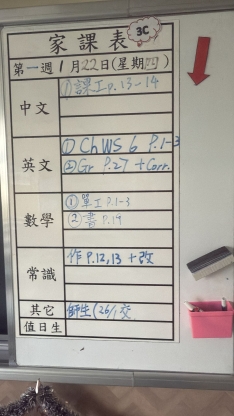 家課表 3C
第一週 1月22日(星期四)
中文 ①課工p.13-14
英文 ① Ch WS 6 P.1-3
② Gr P.27 + Corr.
數學 ①單工P.1-3
②書P.19
常識 作P.12,13 + 改
其它 師生(26/1交
值日生